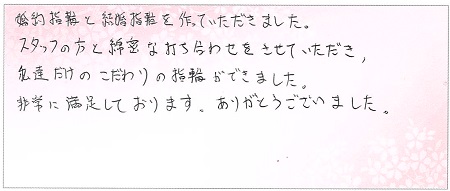 婚約指輪と結婚指輪を作っていただきました。
スタッフの方と綿密な打ち合わせをさせていただき、
私達だけのこだわりの指輪ができました。
非常に満足しております。ありがとうございました。